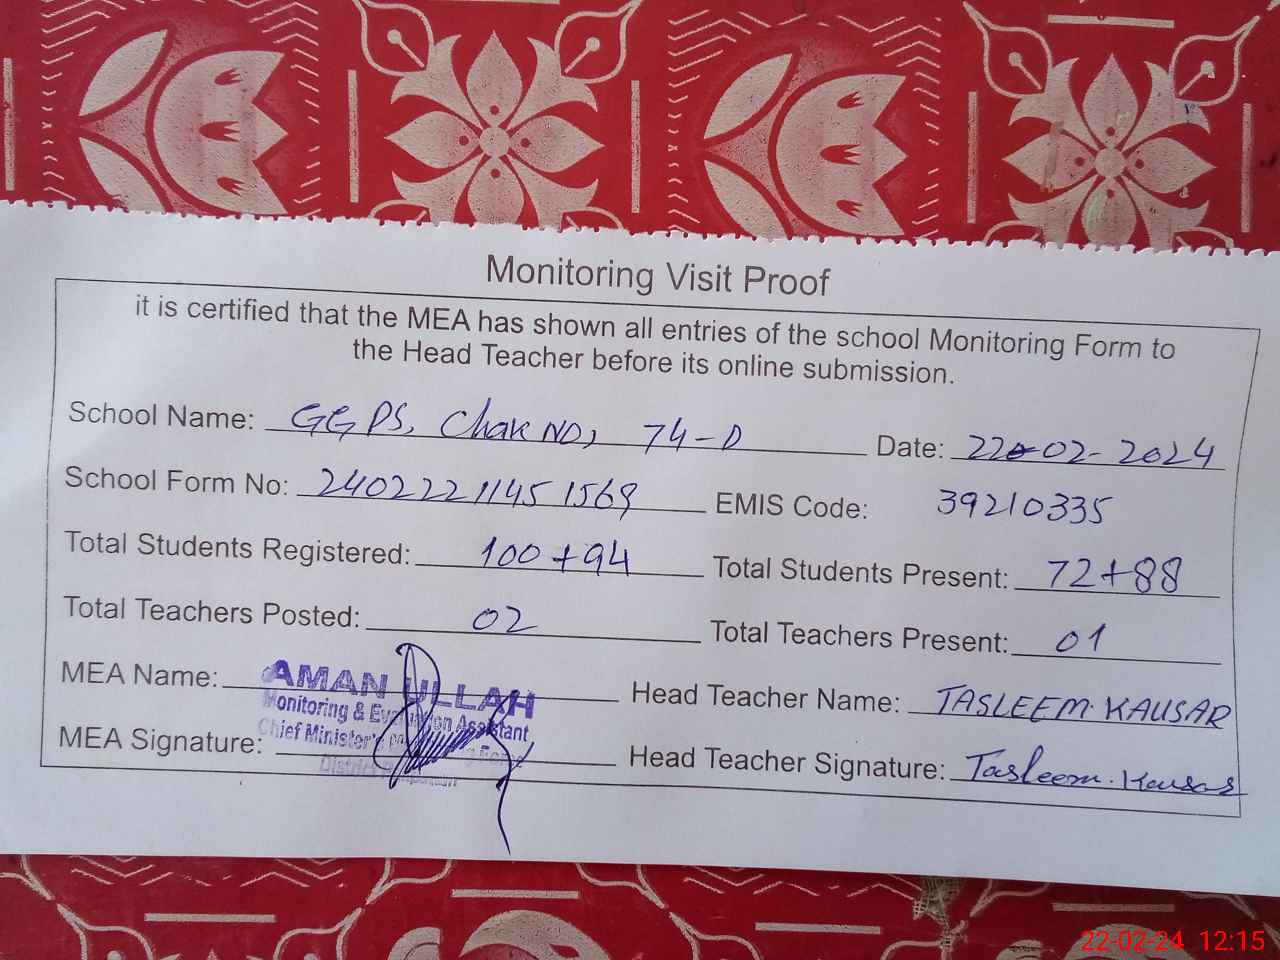 Monitoring Visit Proof
it is certified that the MEA has shown all entries of the school Monitoring Form to
the Head Teacher before its online submission.
School Name: GGPS, Chak NO, 74-D Date: 22-02-2024
School Form No: 2402221145 1569 EMIS Code: 39210335
Total Students Registered: 100+94 Total Students Present: 72+88
Total Teachers Posted: 02 Total Teachers Present: 01
MEA Name: AMAN ULLAH Head Teacher Name: TASLEEM. KAUSAR
Monitoring & Evaluation Assistant
Chief Minister's
MEA Signature: Head Teacher Signature: Tasleem. Kausar
District
22-02-24 12:15